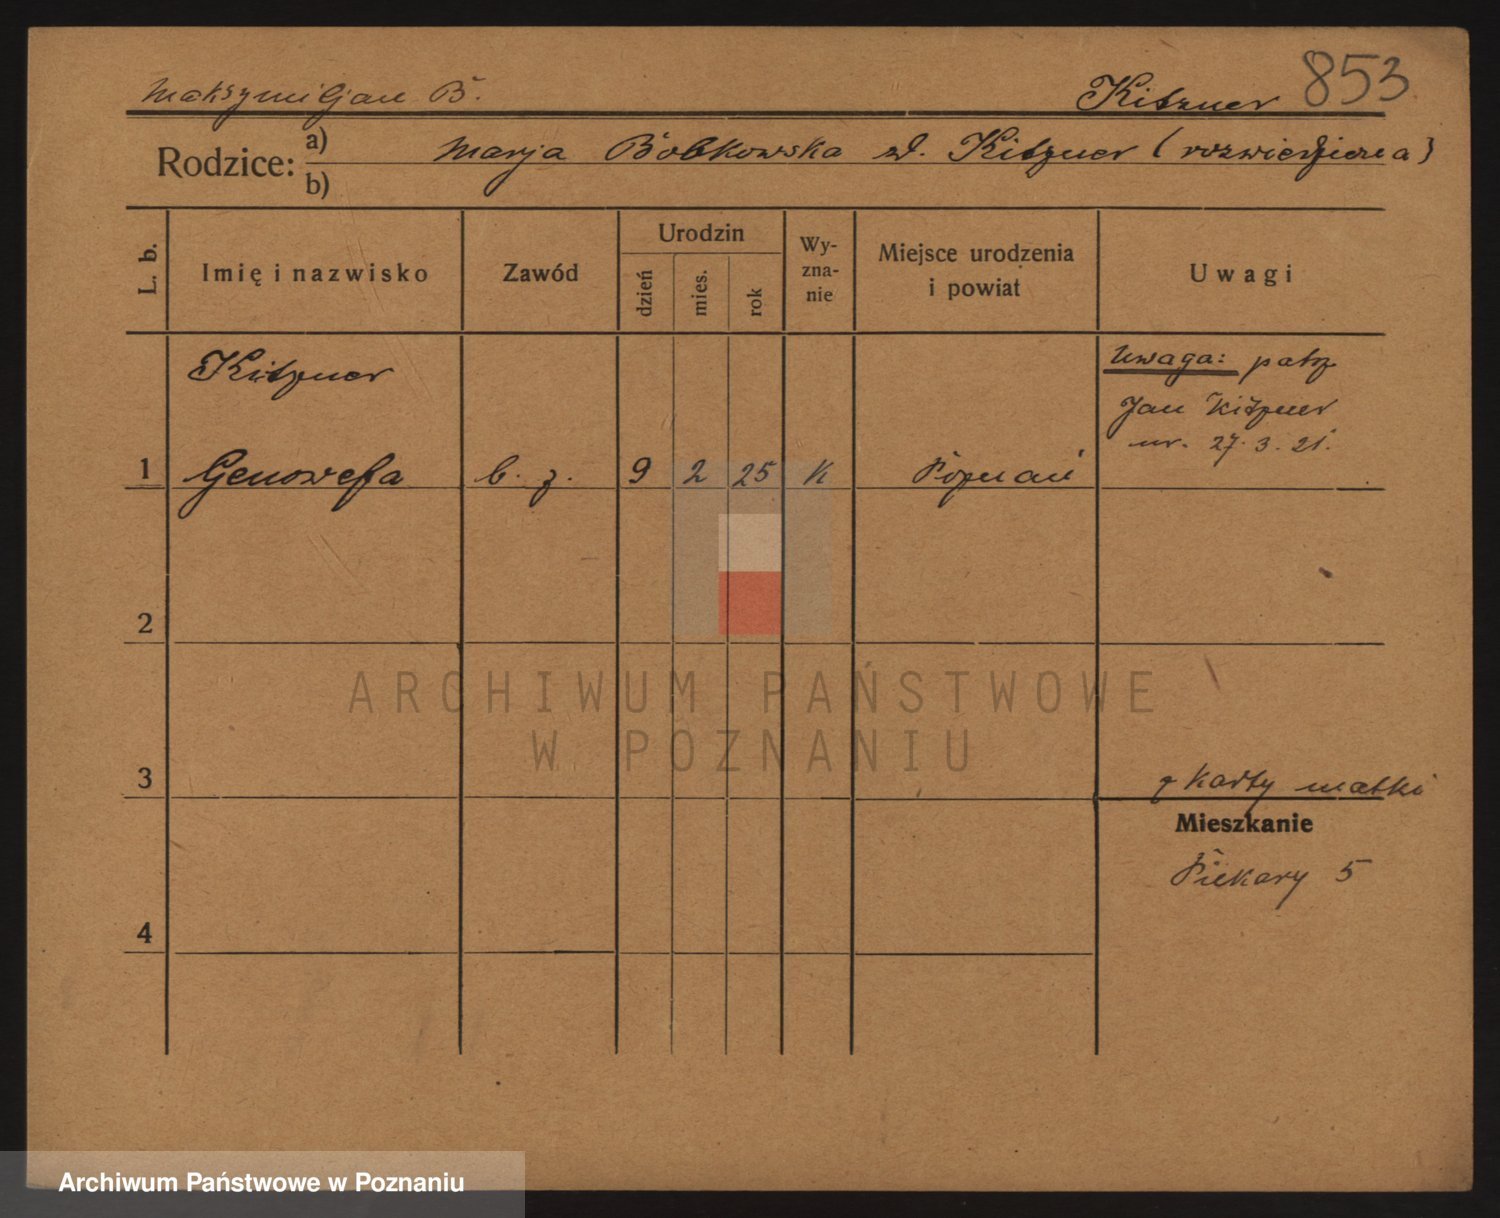 Maksymiljan B. Kitzner 853
Rodzice: a) Marja Bobkowska zł. Kitzner (rozwiedziona)
b)
L. b. Imię i nazwisko Zawód Urodzin dzień mies. rok Wy-zna-nie Miejsce urodzenia i powiat Uwagi
Kitzner
Uwaga: patrz
Jan Kitzner
ur. 27.3.21.
1 Genowefa b. z. 9 2 25 K Poznań
2
ARCHIWUM PAŃSTWOWE
W POZNANIU
3 z karty matki
Mieszkanie
Piekary 5
4
Archiwum Państwowe w Poznaniu